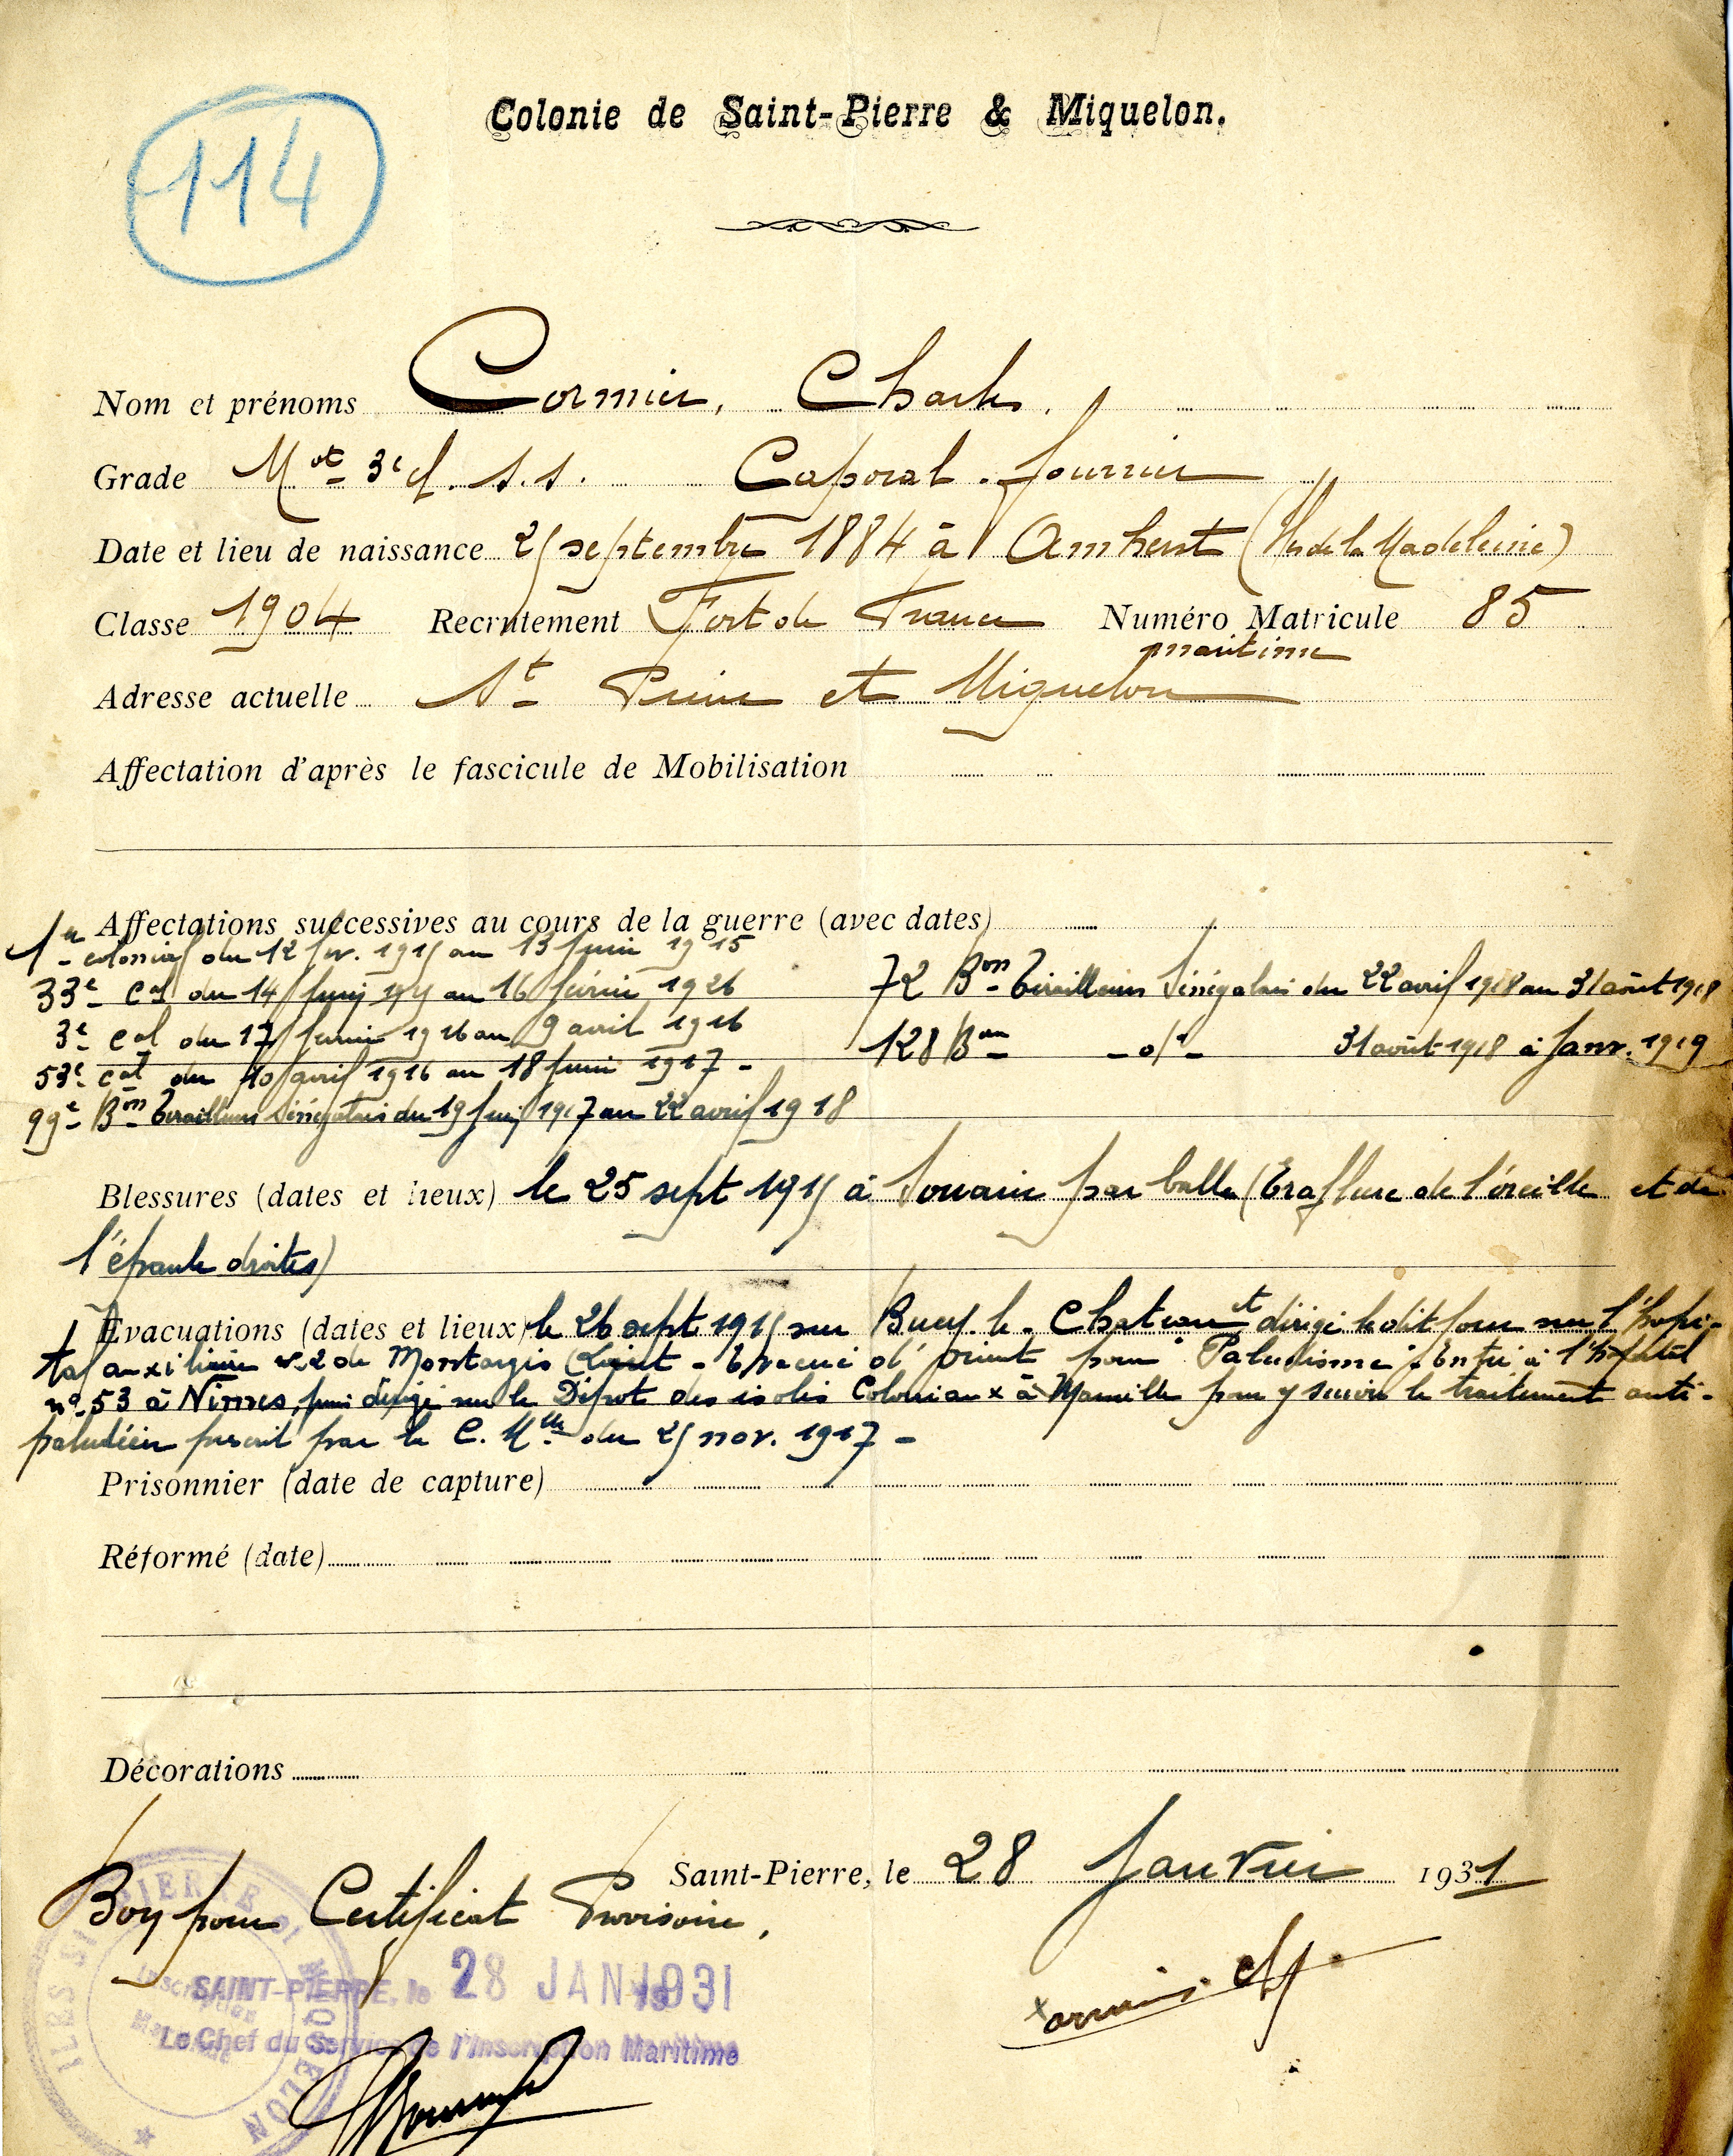 114
Colonie de Saint-Pierre & Miquelon.
Nom et prénoms Cormier, Charles.
Grade Mot 3e cl. s.s. Caporal fourrier
Date et lieu de naissance 25 septembre 1884 à Amherst (Iles de la Madeleine)
Classe 1904 Recrutement Fort de France Numéro Matricule 85
maritime
Adresse actuelle St Pierre et Miquelon
Affectation d'après le fascicule de Mobilisation
Affectations successives au cours de la guerre (avec dates)
1er colonial du 12 fev. 1915 au 13 juin 1915
33e cal du 14 juin 1915 au 16 février 1926
3e cal du 17 février 1916 au 9 avril 1916
53e cal du 10 avril 1916 au 18 juin 1917 -
99e Bon Tirailleurs Sénégalais du 19 juin 1917 au 22 avril 1918
72 Bon Tirailleurs Sénégalais du 22 avril 1918 au 31 août 1918
128 Bon -do- 31 août 1918 à Janv. 1919
Blessures (dates et lieux) le 25 sept 1915 à Souain par balle (Eraflure de l'oreille et de
l'épaule droites)
Evacuations (dates et lieux) le 26 sept 1915 sur Bucy le Chateau et dirigé le dit jour sur l'hopi-
tal auxiliaire n° 2 de Montargis (Loiret - Evacué d'Orient pour "Paludisme" Entré à l'hopital
n° 53 à Nimes, puis dirigé sur le Dépot des isolés Coloniaux à Marseille pour y suivre le traitement anti-
paludéen prescrit par la C. Mlle du 25 nov. 1917 -
Prisonnier (date de capture)
Réformé (date)
Décorations
Saint-Pierre, le 28 Janvier 1931
Bon pour Certificat Provisoire,
SAINT-PIERRE, le 28 JAN 1931
Le Chef du Service de l'Inscription Maritime
ILES ST PIERRE ET MIQUELON
Inscription
Maritime